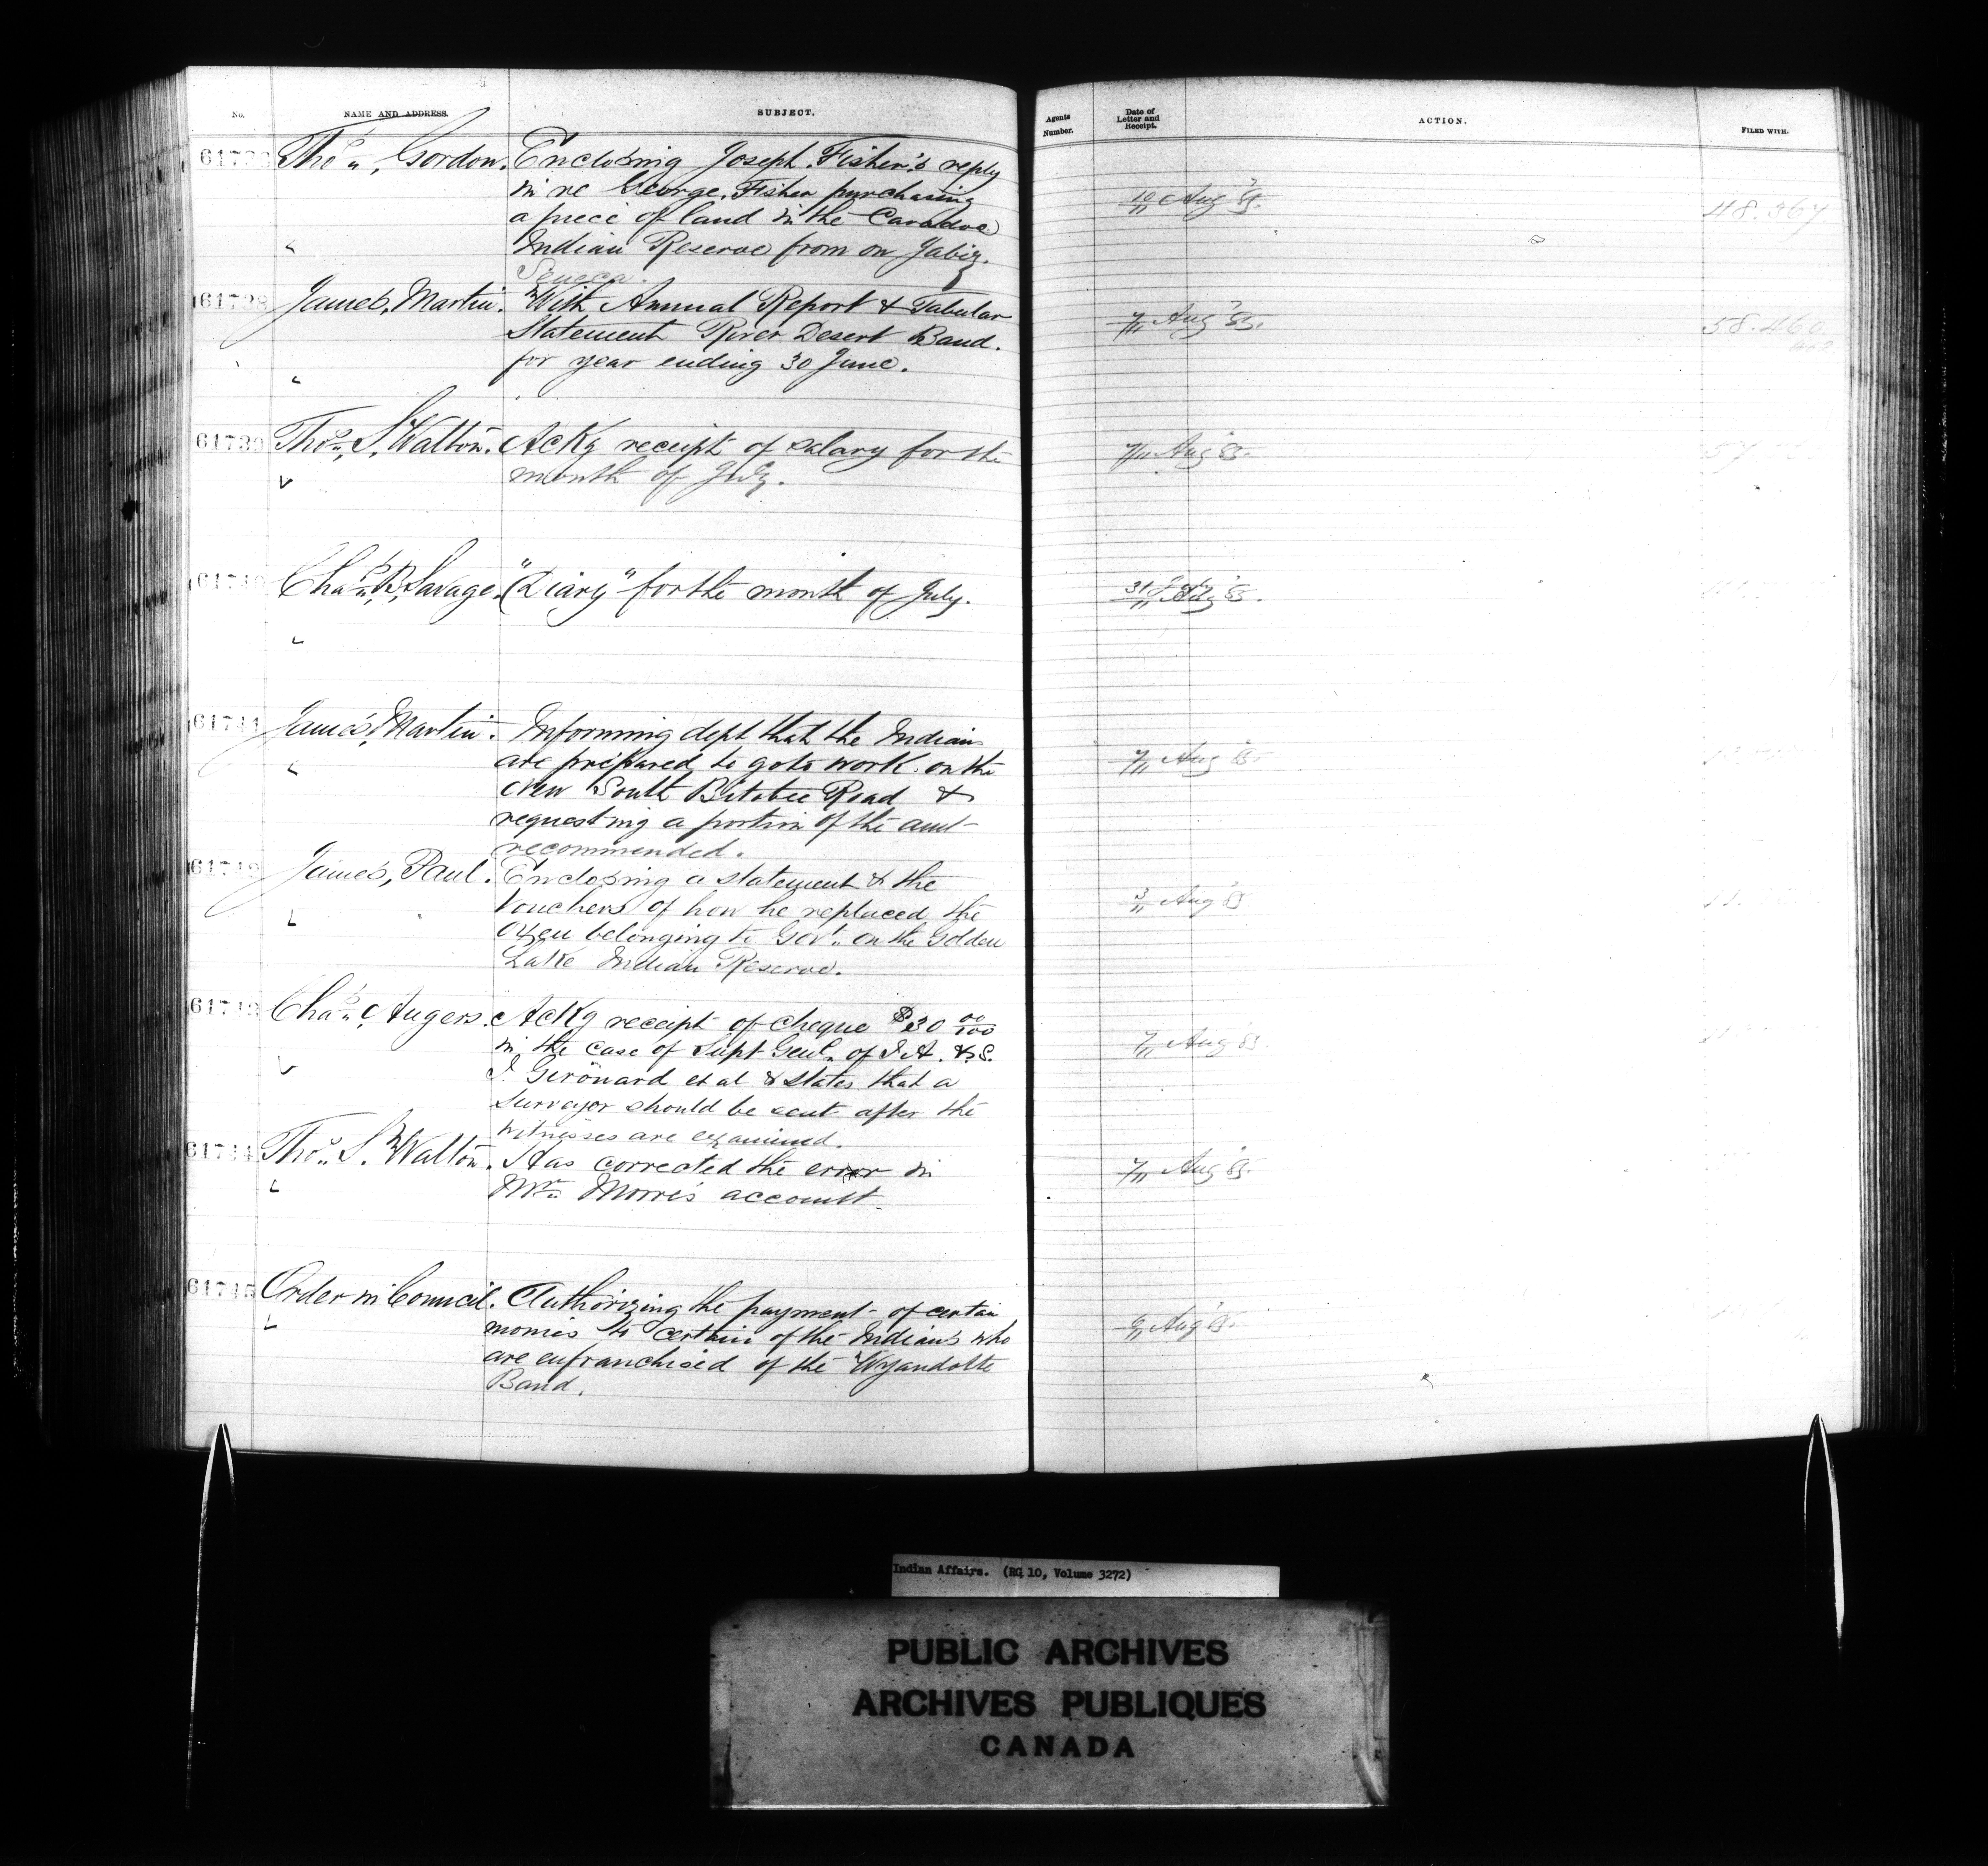 No.
NAME AND ADDRESS.
SUBJECT.
Agents Number.
Date of Letter and Receipt.
ACTION.
FILED WITH.
Thos. Gordon. Enclosing Joseph Fisher's reply
in re George Fisher purchasing
a piece of land in the Caradoc
Indian Reserve from on Jabiz
Seneca.
10/11 Aug '85.
48.367
61738 James Martin. With Annual Report & Tabular
Statement River Desert Band.
for year ending 30 June.
7/11 Aug '85.
58.460
61739 Thos. S. Walton. Ackg receipt of salary for the
month of July.
7/11 Aug 85.
61740 Chas. B. Savage. "Diary" for the month of July.
31/11 July '85.
61741 James Martin. Informing dept that the Indians
are prepared to go to work on the
New South Bitobee Road &
requesting a portion of the amt
recommended.
7/11 Aug 85.
James Paul. Enclosing a statement & the
Vouchers of how he replaced the
oxen belonging to Govt. on the Golden
Lake Indian Reserve.
3/11 Aug '85
61743 Chas. Angers. Ackg receipt of cheque $30 00/100
in the case of Supt Genl. of I.A. vs.
J. Gerouard et al & states that a
surveyor should be sent after the
witnesses are examined.
7/11 Aug '85
61744 Thos. S. Walton. Has corrected the error in
Mr. Morris account.
7/11 Aug '85.
61745 Order in Council. Authorizing the payment of certain
monies to certain of the Indians who
are enfranchised of the Wyandotte
Band.
Aug '85.
Indian Affairs. (RG 10, Volume 3272)
PUBLIC ARCHIVES
ARCHIVES PUBLIQUES
CANADA